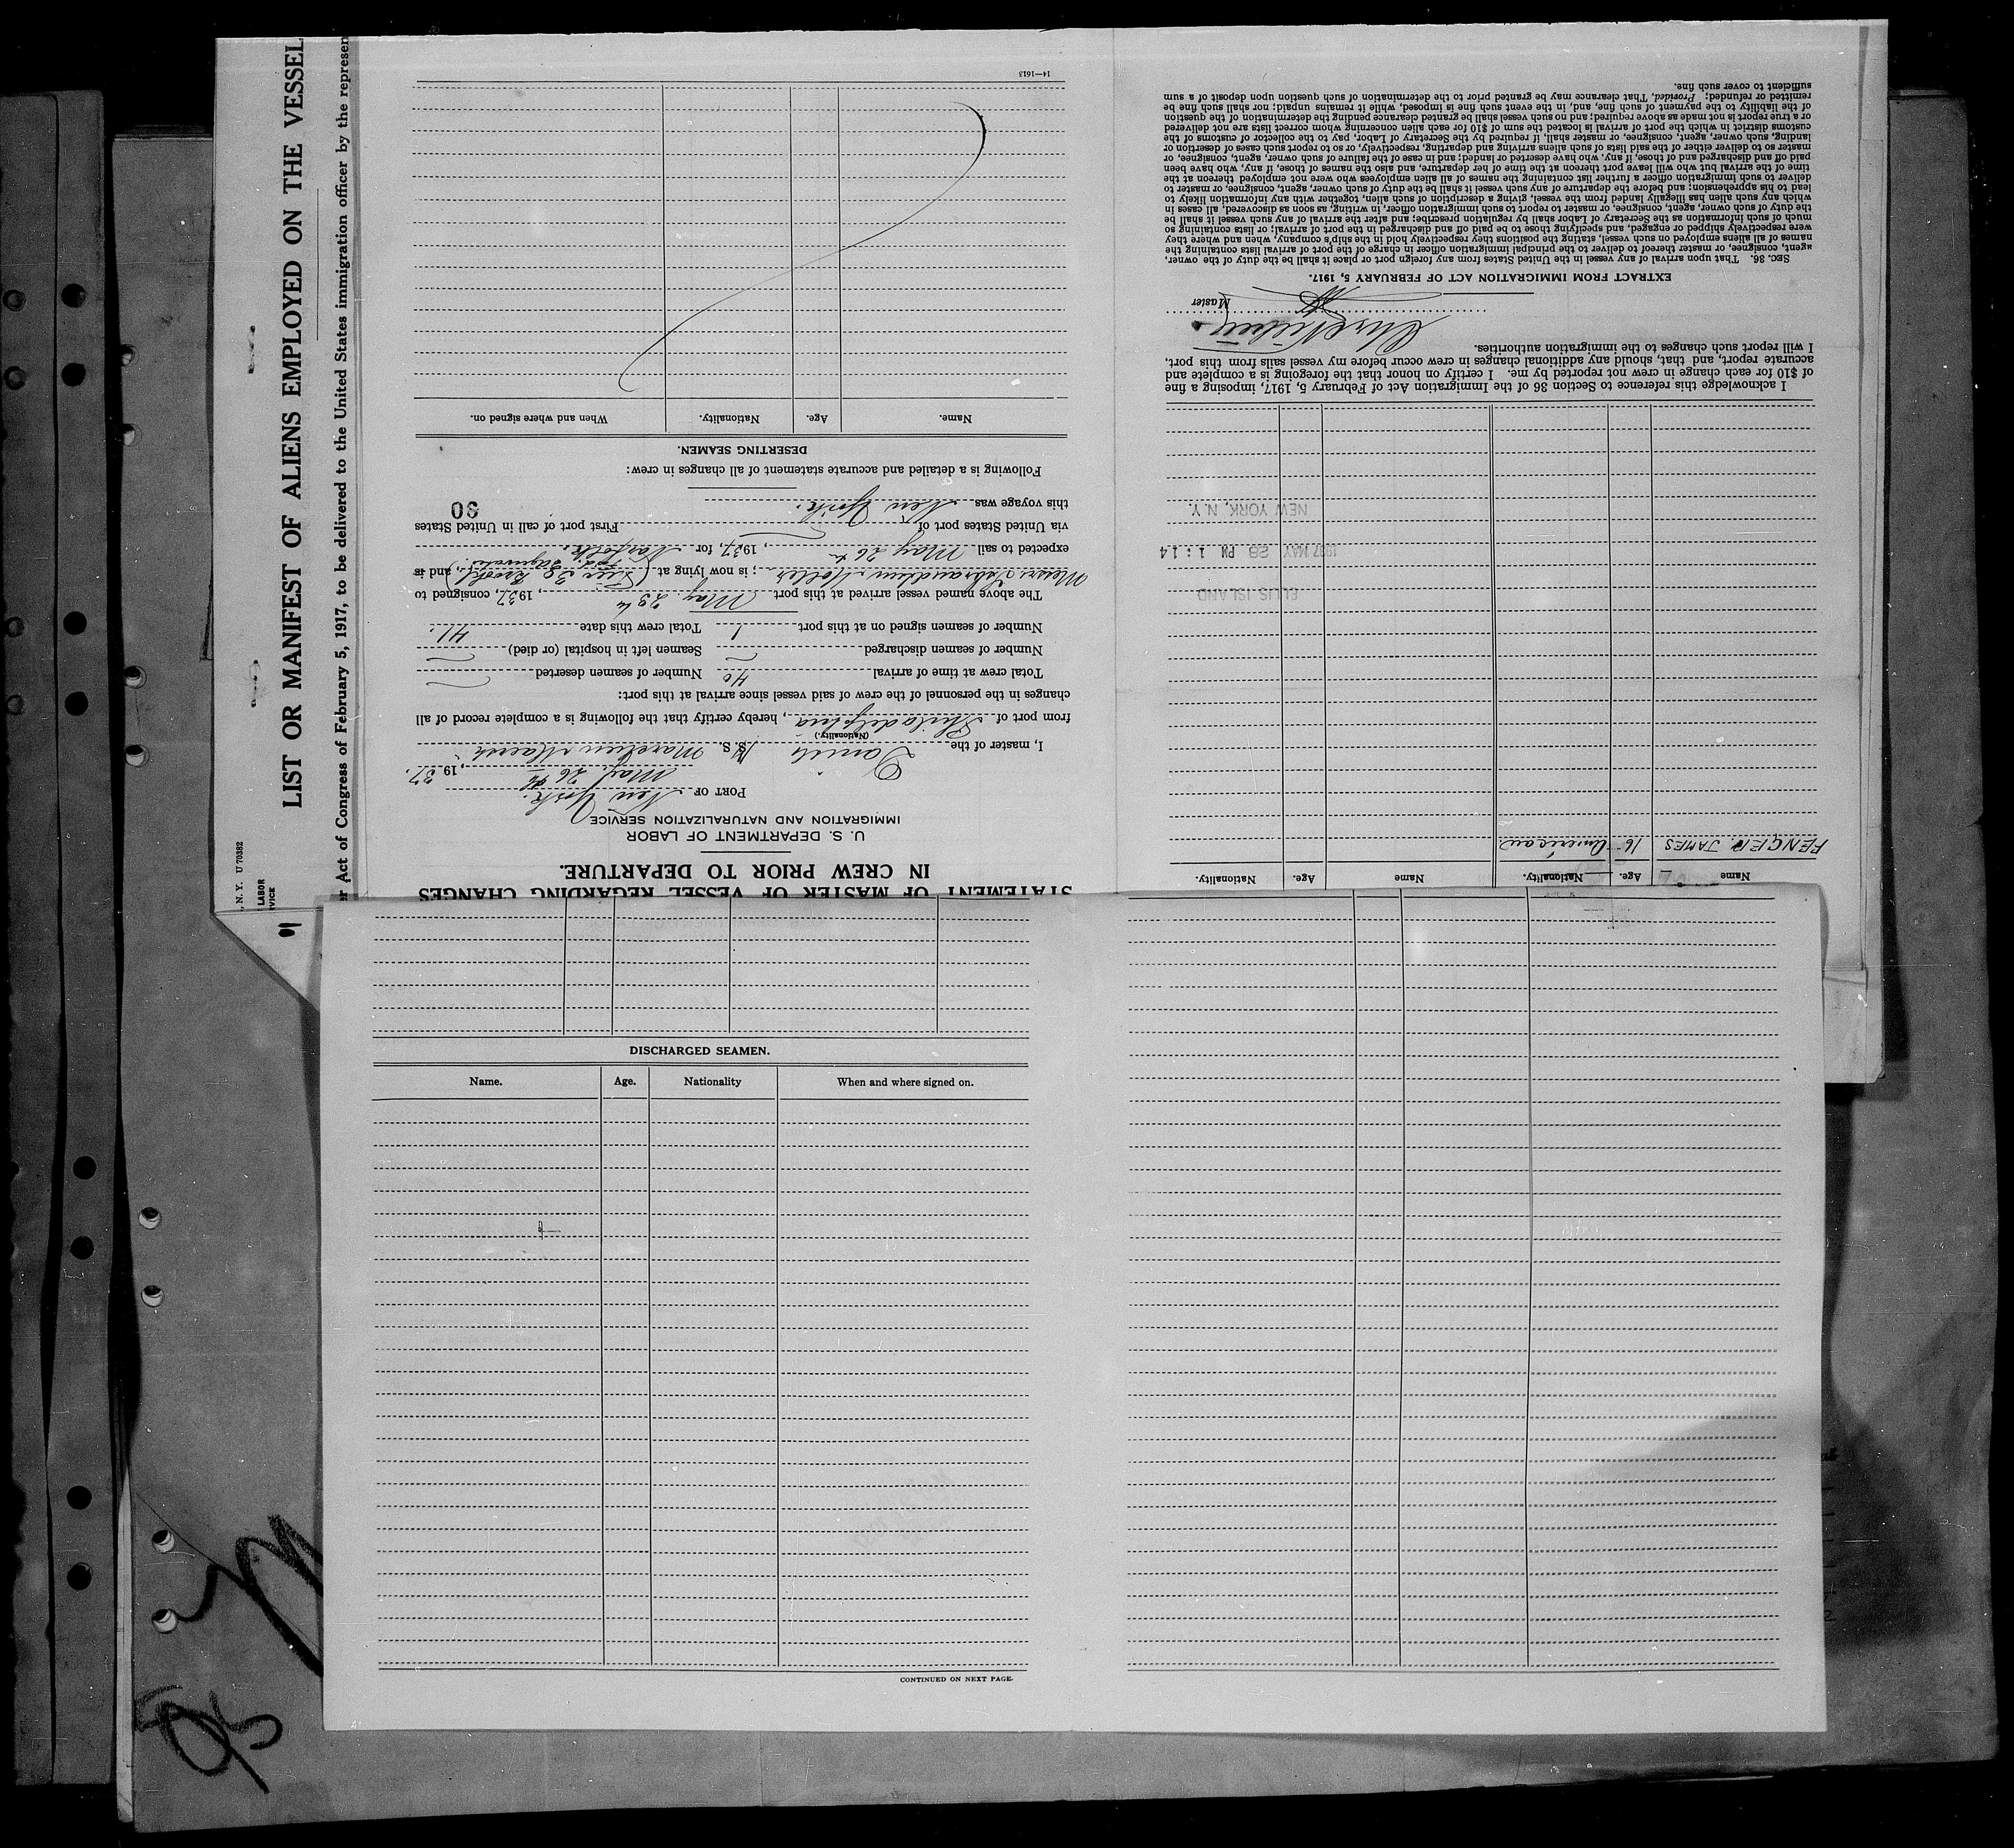 LIST OR MANIFEST OF ALIENS EMPLOYED ON THE VESSEL
er Act of Congress of February 5, 1917, to be delivered to the United States immigration officer by the represen
, N. Y. U 70382
LABOR
VICE
STATEMENT OF MASTER OF VESSEL REGARDING CHANGES
IN CREW PRIOR TO DEPARTURE.
U. S. DEPARTMENT OF LABOR
IMMIGRATION AND NATURALIZATION SERVICE
PORT OF New York.
May 26th, 1937.
I, master of the Danish S. S. Marchen Maersk
(Nationality.)
from port of Philadelphia, hereby certify that the following is a complete record of all
changes in the personnel of the crew of said vessel since arrival at this port:
Total crew at time of arrival 40 Number of seamen deserted
Number of seamen discharged Seamen left in hospital (or died)
Number of seamen signed on at this port 1 Total crew this date 41.
The above named vessel arrived at this port May, 1937, consigned to
Messrs Isbrandtsen Moller; is now lying at (Pier 30 Brookl.), and is
expected to sail May 26th, 1937, for Norfolk.
via United States port of First port of call in United States
this voyage was New York.
30
Following is a detailed and accurate statement of all changes in crew:
DESERTING SEAMEN.
Name. Age. Nationality. When and where signed on.
14—1613
Name Age. Nationality. Name Age. Nationality.
FENGER JAMES 16 American.
ELLIS ISLAND
1937 MAY 26 PM 1:14
NEW YORK, N.Y.
I acknowledge this reference to Section 36 of the Immigration Act of February 5, 1917, imposing a fine
of $10 for each change in crew not reported by me. I certify on honor that the foregoing is a complete and
accurate report, and that, should any additional changes in crew occur before my vessel sails from this port,
I will report such changes to the immigration authorities.
Master
EXTRACT FROM IMMIGRATION ACT OF FEBRUARY 5, 1917.
SEC. 36. That upon arrival of any vessel in the United States from any foreign port or place it shall be the duty of the owner,
agent, consignee, or master thereof to deliver to the principal immigration officer in charge of the port of arrival lists containing the
names of all aliens employed on such vessel, stating the positions they respectively hold in the ship's company, when and where they
were respectively shipped or engaged, and specifying those to be paid off and discharged in the port of arrival; or lists containing so
much of such information as the Secretary of Labor shall by regulation prescribe; and after the arrival of any such vessel it shall be
the duty of such owner, agent, consignee, or master to report to such immigration officer, in writing, as soon as discovered, all cases in
which any such alien has illegally landed from the vessel, giving a description of such alien, together with any information likely to
lead to his apprehension; and before the departure of any such vessel it shall be the duty of such owner, agent, consignee, or master to
deliver to such immigration officer a further list containing the names of all alien employees who were not employed thereon at the
time of the arrival but who will leave port thereon at the time of her departure, and also the names of those, if any, who have been
paid off and discharged and of those, if any, who have deserted or landed; and in case of the failure of such owner, agent, consignee, or
master so to deliver either of the said lists of such aliens arriving and departing, respectively, or so to report such cases of desertion or
landing, such owner, agent, consignee, or master shall, if required by the Secretary of Labor, pay to the collector of customs of the
customs district in which the port of arrival is located the sum of $10 for each alien concerning whom correct lists are not delivered
or a true report is not made as above required; and no such vessel shall be granted clearance pending the determination of the question
of the liability to the payment of such fine, and, in the event such fine is imposed, while it remains unpaid; nor shall such fine be
remitted or refunded; Provided, That clearance may be granted prior to the determination of such question upon deposit of a sum
sufficient to cover such fine.
DISCHARGED SEAMEN.
Name. Age. Nationality When and where signed on.
CONTINUED ON NEXT PAGE.
95